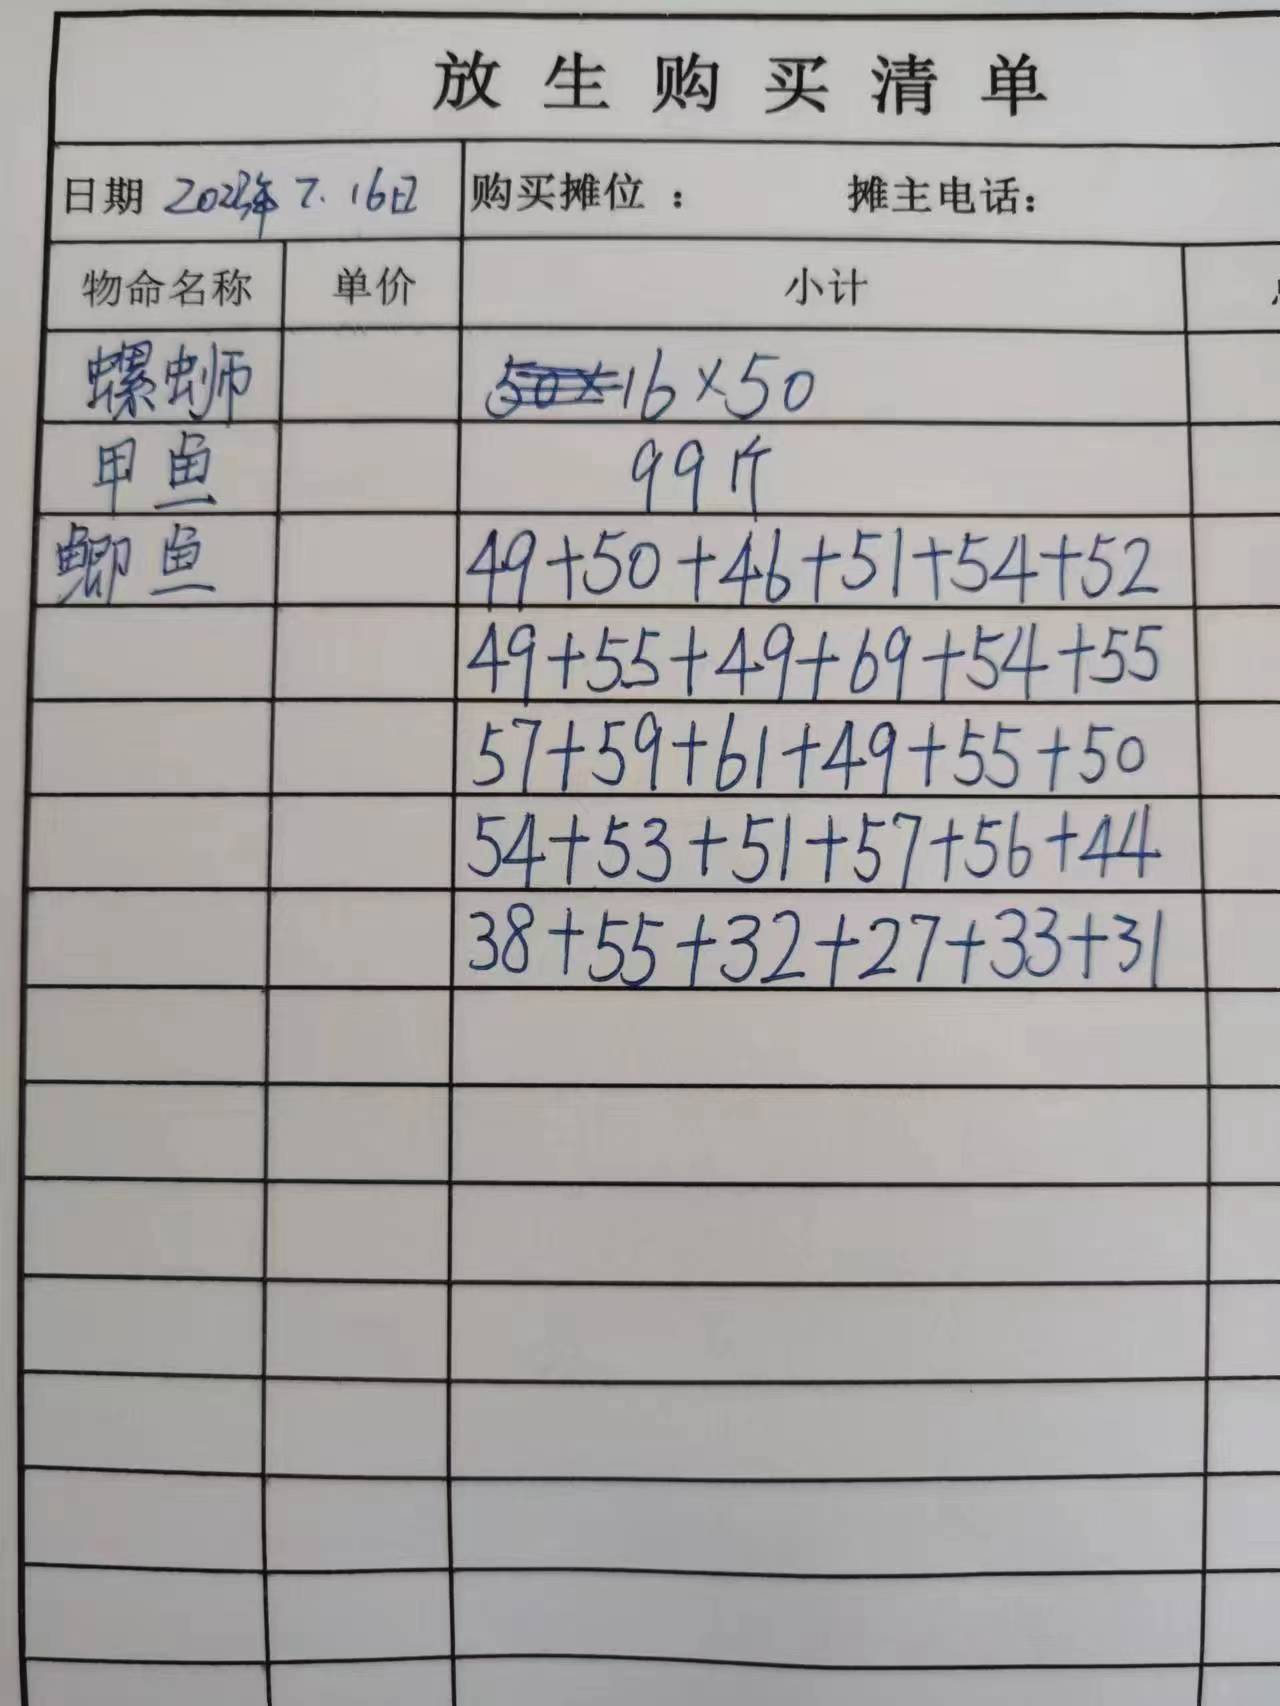 放生购买清单
日期 2023年 7. 16日 购买摊位： 摊主电话：
物命名称 单价 小计
螺蛳 16×50
甲鱼 99斤
鲫鱼 49+50+46+51+54+52
49+55+49+69+54+55
57+59+61+49+55+50
54+53+51+57+56+44
38+55+32+27+33+31